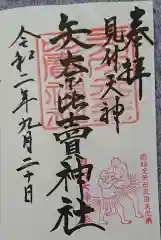 奉拝
見付天神
矢奈比賣神社
令和二年九月二十日